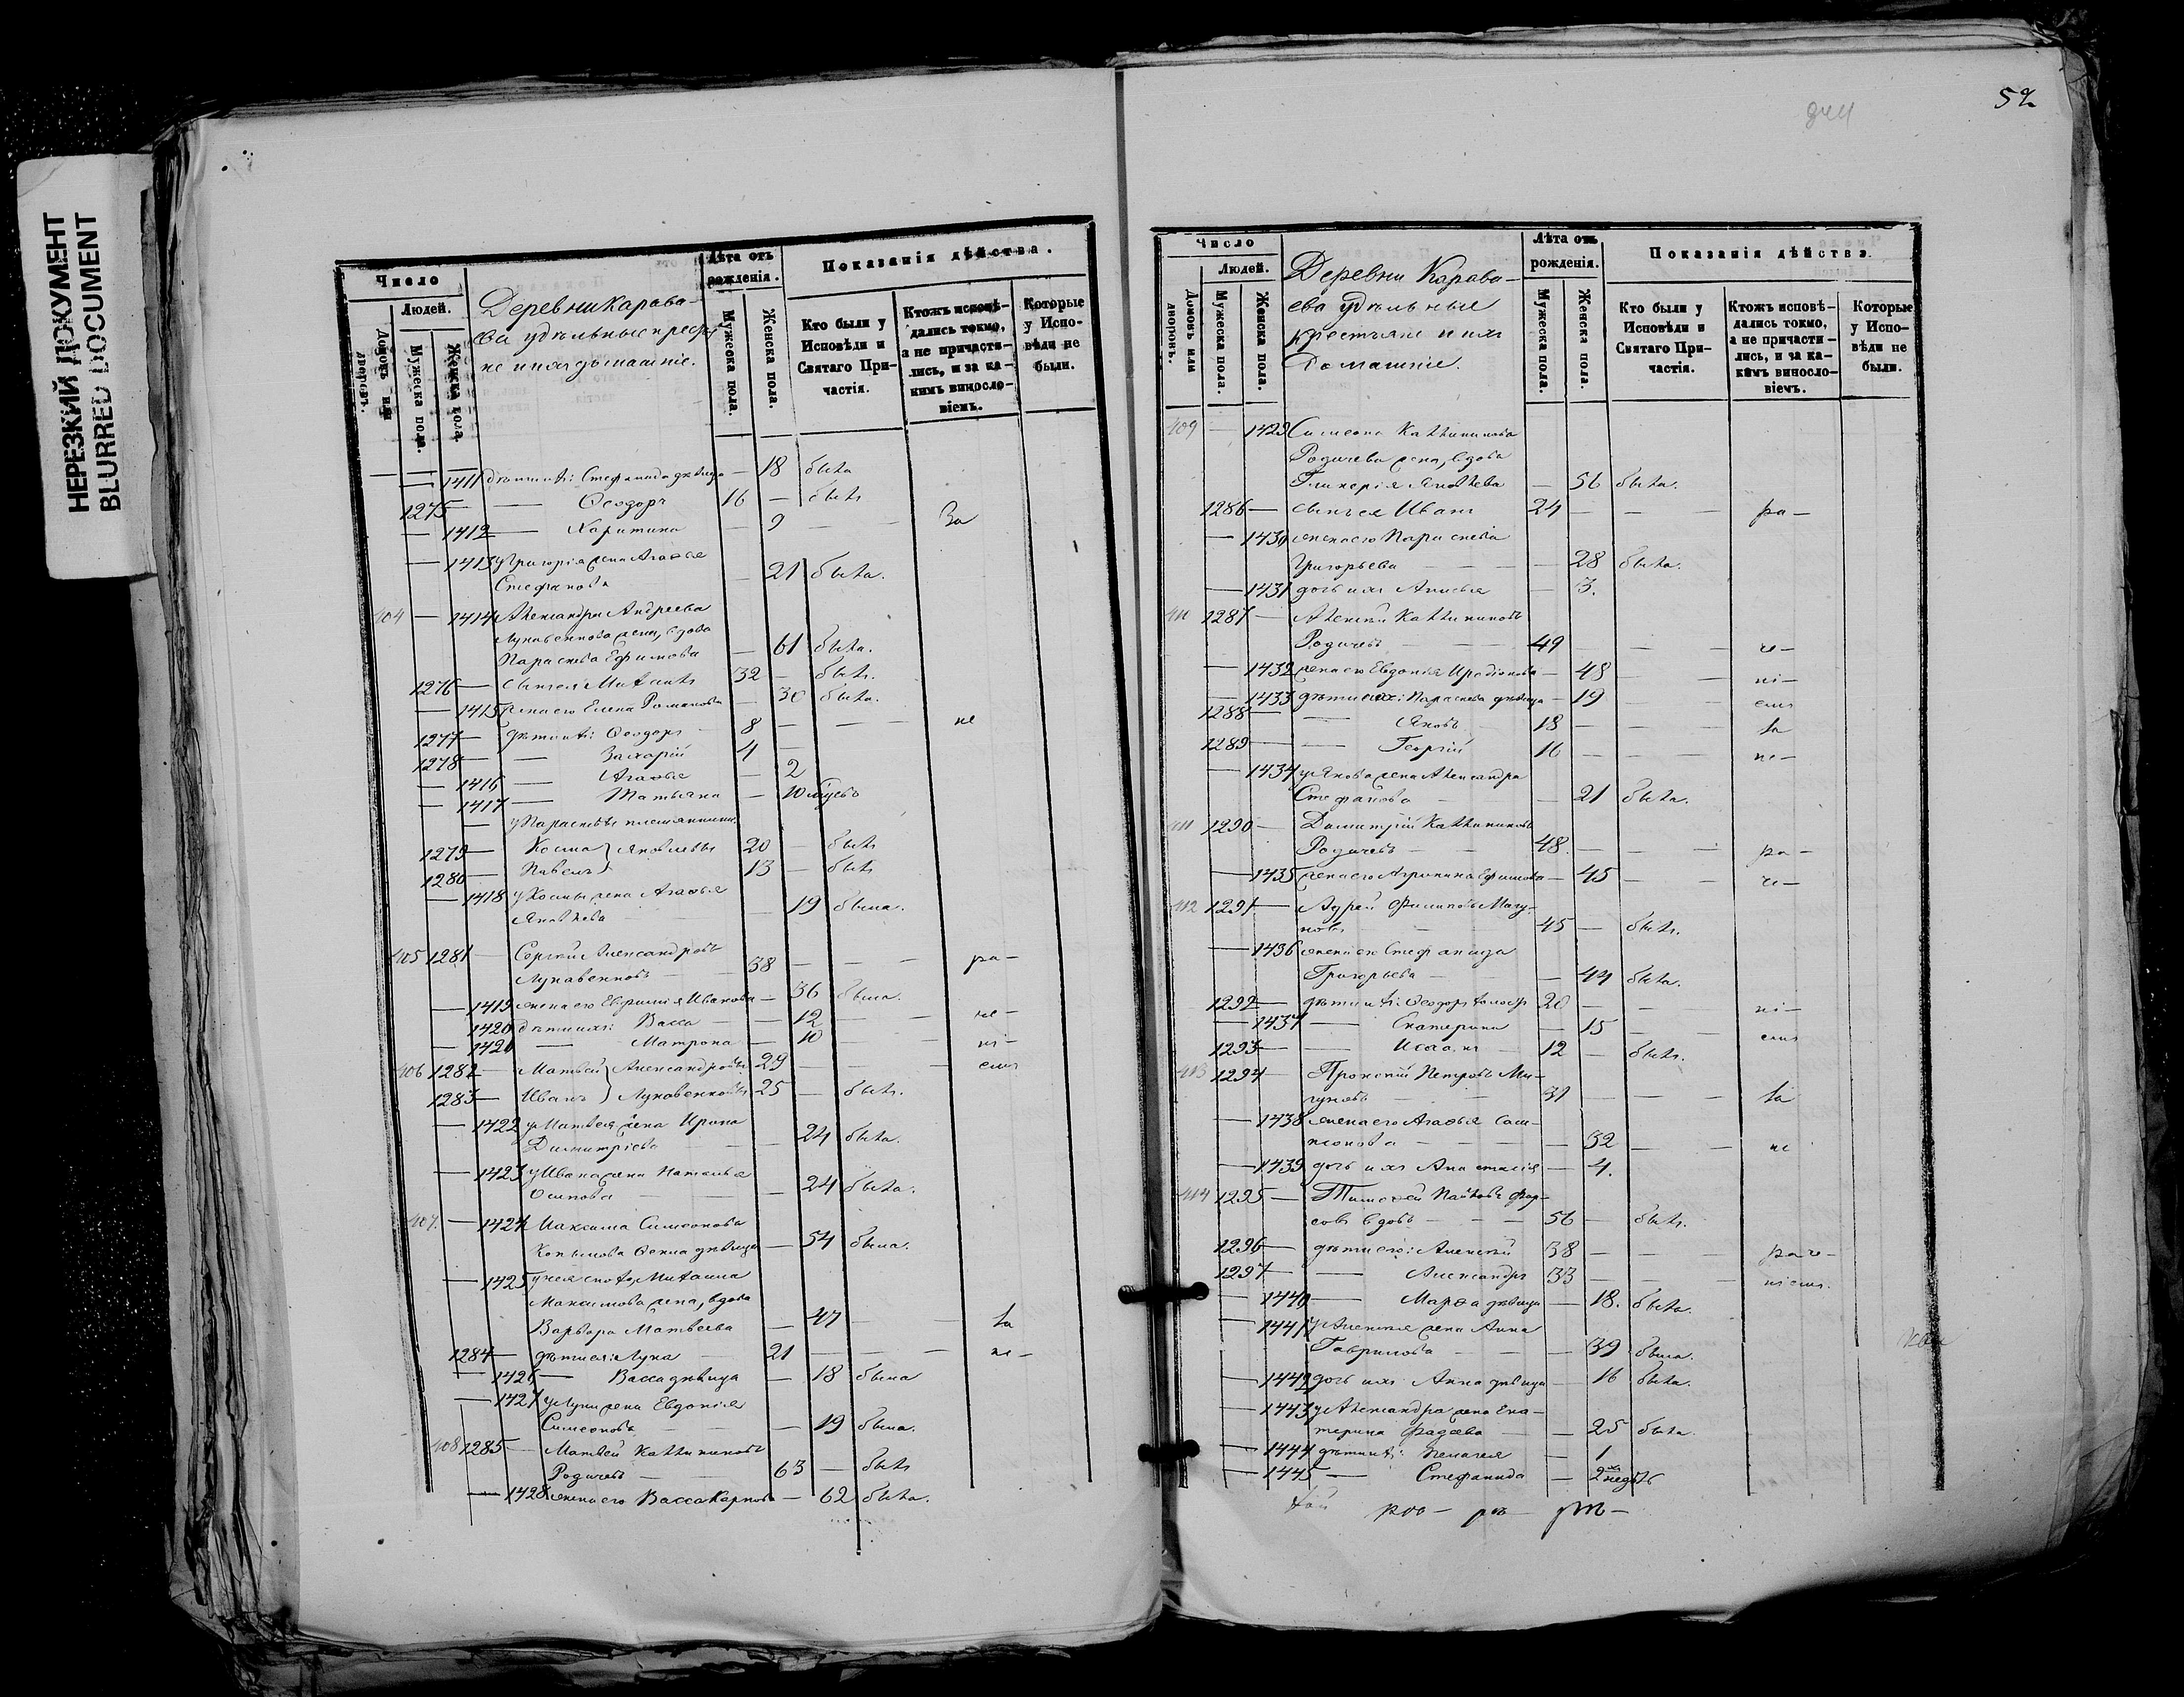 НЕРЕЗКИЙ ДОКУМЕНТ
BLURRED DOCUMENT
Число
Людей.
Домовъ или дворовъ.
Мужеска пола.
Женска пола.
Деревни Карава-
ева удѣльные кресть
не и ихъ домашніе.
Лѣта отъ рожденія.
Мужеска пола.
Женска пола.
Показанія дѣйства.
Кто были у Исповѣди и Святаго При-частія.
Ктожъ исповѣ-дались токмо, а не причасти-лись, и за ка-кимъ винословіемъ.
Которые у Испо-вѣди не были.
1411 дѣти ея: Стефанида дѣвица — 18 была
1275 — Ѳеодоръ 16 — былъ
— 1412 — Харитина — 9 — — За
— 1413 у Григорія жена Агаѳья
Стефанова — 21 была.
404 — 1414 Александра Андреева
жена, вдова
Параскева Ефимова — 61 была.
1276 — сынъ ея Михаилъ 32 — былъ.
— 1415 жена его Елена Романова — 30 была.
1277 — дѣти ихъ: Ѳеодоръ 8 — — — не
1278 — — Захарій 4 —
— 1416 — Агаѳья — 2
— 1417 — Татьяна — 10
у Параскевы племянники
1279 — Косма } Яковлевы 20 — былъ
1280 — Павелъ } 13 — былъ
— 1418 у Космы жена Агаѳья
Яковлева — 19 была.
405 1281 — Сергій Александровъ
Лукавенковъ — 38 — — — ра-
— 1419 жена его Евфимія Иванова — 36 была.
1420 дѣти ихъ: Васса — 12 — — че-
— 1421 — Матрона — 10 — — ні-
406 1282 — Матвей } Александровы 29 — — — емъ
1283 — Иванъ } Лукавенковы 25 — былъ.
— 1422 у Матвея жена Ирина
Димитріева — 24 была.
— 1423 у Ивана жена Наталья
Осипова — 24 была.
407. — 1424 Максима Симеонова
Ѳекла дѣвица — 54 была.
— 1425 у нея сноха, Михаила
Максимова жена, вдова
Варвара Матвеева — 47 — — за
1284 — дѣти ея: Лука 21 — — — не-
— 1426 — Васса дѣвица — 18 была
— 1427 у Луки жена Евдокія
Симеонова — 19 была.
408 1285 — Матвей Каллиниковъ
Родичевъ — 63 — былъ
— 1428 жена его Васса Карпова — 62 была.
52
Число
Людей.
Домовъ или дворовъ.
Мужеска пола.
Женска пола.
Деревни Карава-
ева удѣльные
крестьяне и ихъ
домашніе.
Лѣта отъ рожденія.
Мужеска пола.
Женска пола.
Показанія дѣйства.
Кто были у Исповѣди и Святаго При-частія.
Ктожъ исповѣ-дались токмо, а не причасти-лись, и за ка-кимъ винословіемъ.
Которые у Испо-вѣди не были.
409 — 1429 Симеона Каллиникова
Родичева жена, вдова
Гликерія Яковлева — 56 была.
1286 — сынъ ея Иванъ 24 — — — ра-
— 1430 жена его Параскева
Григорьева — 28 была.
— 1431 дочь ихъ Анисья — 3.
410 1287 — Алексѣй Каллиниковъ
Родичевъ — 49 — — че-
— 1432 жена его Евдокія Иродіонова — 48 — — ні-
— 1433 дѣти ихъ: Параскева дѣвица — 19 — — емъ
1288 — — Яковъ 18 — — — за
1289 — — Георгій 16 — — — не-
— 1434 у Якова жена Александра
Стефанова — 21 была.
411 1290 — Димитрій Каллиниковъ
Родичевъ — 48. — — — ра-
— 1435 жена его Агрипина Ефимова — 45 — — че-
412 1291 — Филиповъ
45 — былъ.
— 1436 жена его Стефанида
Григорьева — 44 была.
1292 — дѣти ихъ: Ѳеодоръ холостъ 20 — — ні-
— 1437 — Екатерина — 15 — — емъ
1293 — — Исаакъ — 12 — былъ.
413 1294 — Прокопій Петровъ Ми-
31 — — — за
— 1438 жена его Агаѳья Сам-
сонова — 32 — — не
— 1439 дочь ихъ Анастасія — 4.
414 1295 — Тимоѳей Павловъ
вдовъ — 56 — былъ.
1296 — дѣти его: Алексѣй 38 — — — раче-
1297 — — Александръ 33 — — — ніемъ.
— 1440 — Марѳа дѣвица — 18. была.
— 1441 у Алексѣя жена Анна
Гаврилова — 39 была.
— 1442 дочь ихъ Анна дѣвица — 16 была.
— 1443 у Александра жена Ека-
терина Фадеева — 25 была.
— 1444 дѣти ихъ: Пелагея — 1
— 1445 — Стефанида — 2 недѣль